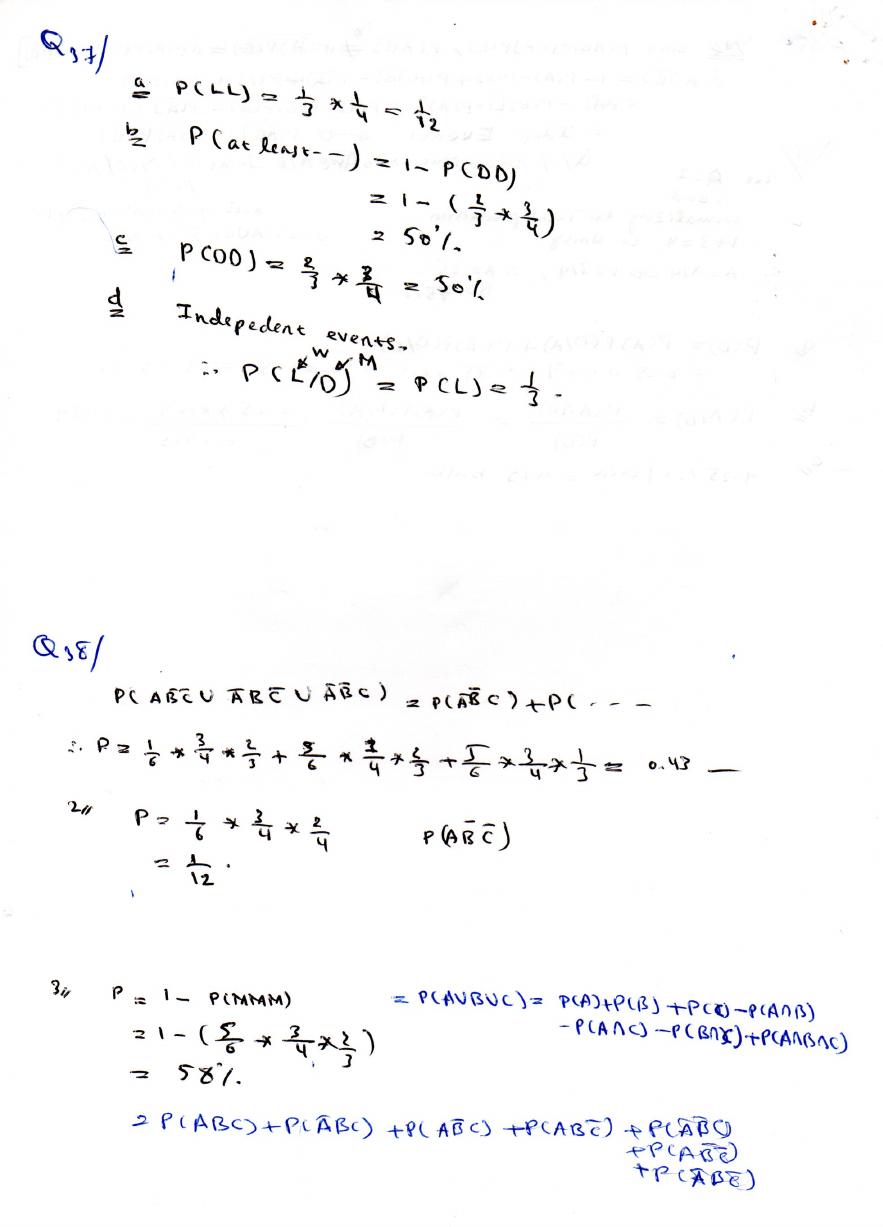 Q37/
a P(LL) = 1/3 * 1/4 = 1/12
b P(at least--) = 1- P(DD)
= 1- (2/3 * 3/4)
= 50%.
c P(DD) = 2/3 * 3/4 = 50%
d Indepedent events.
W M
∴ P(L/D) = P(L) = 1/3.
Q38/
P(AB̄C̄ ∪ ĀBC̄ ∪ ĀB̄C) = P(AB̄C̄)+P(---
∴ P= 1/6 * 3/4 * 2/3 + 5/6 * 1/4 * 2/3 + 5/6 * 3/4 * 1/3 = 0.43
2// P= 1/6 * 3/4 * 2/4 P(AB̄C̄)
= 1/12.
3// P = 1- P(MMM) = P(A∪B∪C)= P(A)+P(B)+P(C)-P(A∩B)
-P(A∩C)-P(B∩C)+P(A∩B∩C)
= 1- (5/6 * 3/4 * 2/3)
= 58%.
= P(ABC)+P(ĀBC)+P(AB̄C)+P(ABC̄)+P(ĀB̄C)
+P(AB̄C̄)
+P(ĀBC̄)